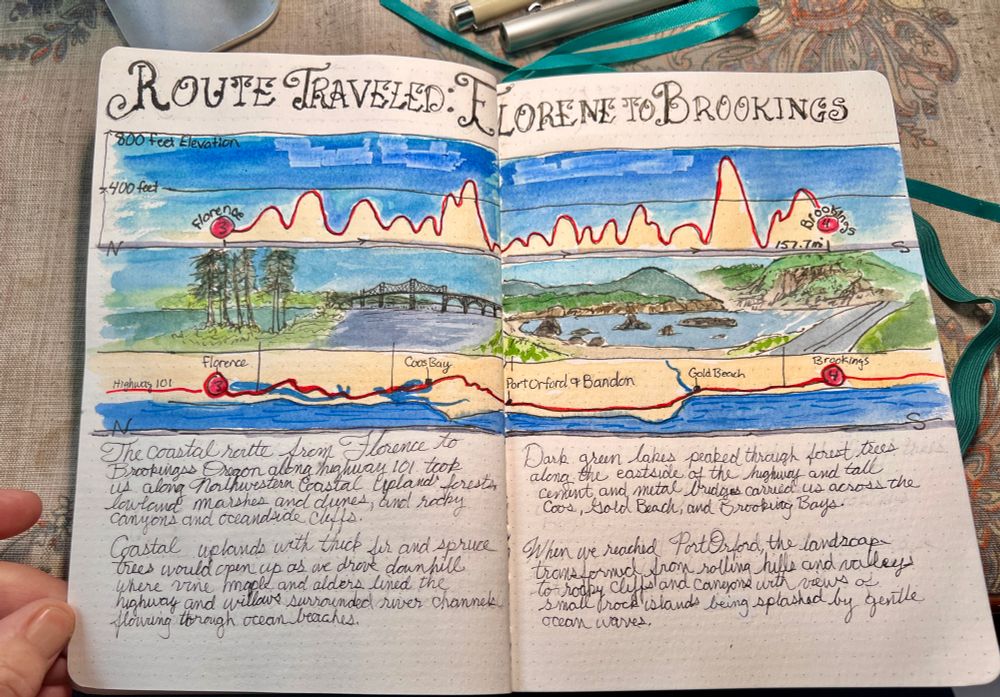 ROUTE TRAVELED: FLORENE TO BROOKINGS
800 feet Elevation
400 feet
Florence
3
Brookings
4
157.7mi
N
S
Florence
Coos Bay
Port Orford & Bandon
Gold Beach
Brookings
Highway 101
3
4
N
S
The coastal route from Florence to
Brookings Oregon along highway 101 took
us along Northwestern Coastal Upland forests,
lowland marshes and dunes, and rocky
canyons and oceanside cliffs.
Coastal uplands with thick fir and spruce
trees would open up as we drove downhill
where vine maple and alders lined the
highway and willows surrounded river channels
flowing through ocean beaches.
Dark green lakes peaked through forest trees trees
along the eastside of the highway and tall
cement and metal bridges carried us across the
Coos, Gold Beach, and Brooking Bays.
When we reached Port Orford, the landscape
transformed from rolling hills and valleys
to rocky cliffs and canyons with views of
small rock islands being splashed by gentle
ocean waves.